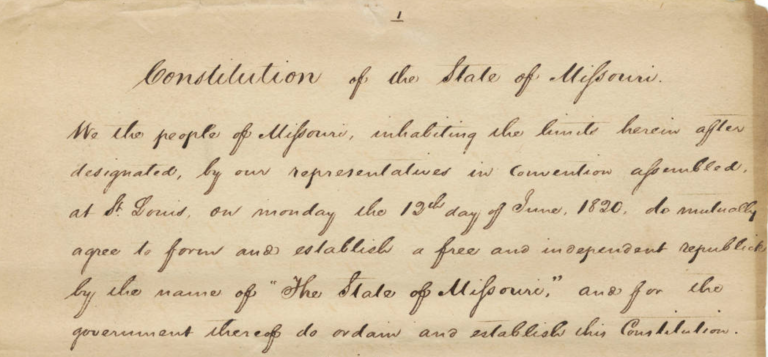 1
Constitution of the State of Missouri.
We the people of Missouri, inhabiting the limits herein after
designated, by our representatives in Convention assembled,
at St. Louis, on monday the 12th day of June, 1820, do mutually
agree to form and establish a free and independent republick
by the name of "The State of Missouri," and for the
government thereof do ordain and establish this Constitution.